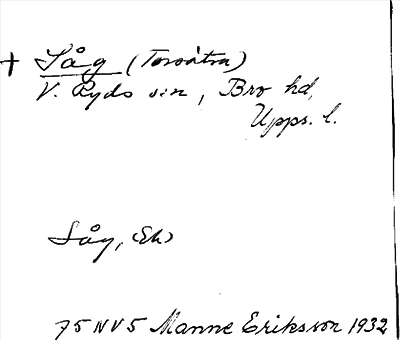 + Såg (Torsåtra)
V. Ryds sn, Bro hd,
Upps. l.
Såg, (Ek)
75 NV 5 Manne Eriksson 1932